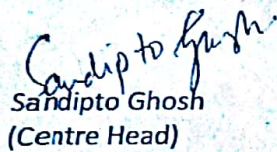 Sandipto Ghosh.
Sandipto Ghosh
(Centre Head)